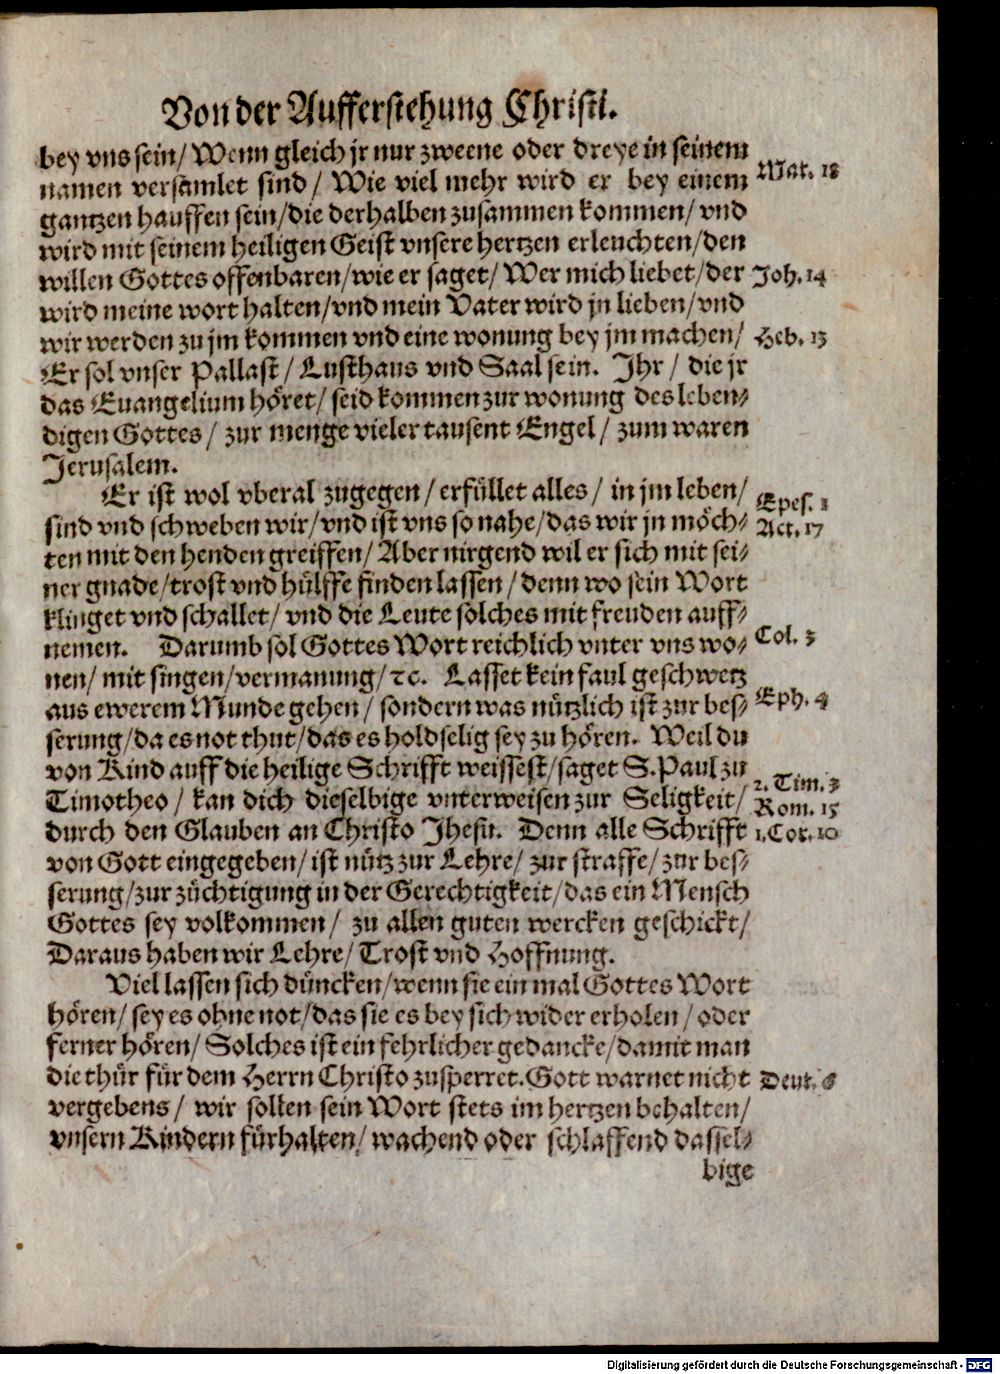 Von der Aufferstehung Christi.
bey vns sein/ Wenn gleich jr nur zweene oder dreye in seinem
namen versamlet sind / Wie viel mehr wird er bey einem Mat. 18
gantzen hauffen sein/die derhalben zusammen kommen/ vnd
wird mit seinem heiligen Geist vnsere hertzen erleuchten/den
willen Gottes offenbaren/wie er saget/ Wer mich liebet/der Joh. 14
wird meine wort halten/vnd mein Vater wird jn lieben/vnd
wir werden zu jm kommen vnd eine wonung bey jm machen/ Heb. 13
Er sol vnser Pallast / Lusthaus vnd Saal sein. Ihr / die jr
das Euangelium höret/ seid kommen zur wonung des leben-
digen Gottes / zur menge vieler tausent Engel / zum waren
Jerusalem.
Er ist wol vberal zugegen / erfüllet alles / in jm leben/ Epes. 1
sind vnd schweben wir/vnd ist vns so nahe/das wir jn möch- Act. 17
ten mit den henden greiffen/ Aber nirgend wil er sich mit sei-
ner gnade/trost vnd hülffe finden lassen / denn wo sein Wort
klinget vnd schallet/ vnd die Leute solches mit freuden auff-
nemen. Darumb sol Gottes Wort reichlich vnter vns wo- Col. 3
nen/ mit singen/vermanung/ ꝛc. Lasset kein faul geschwetz
aus ewerem Munde gehen / sondern was nützlich ist zur bes- Eph. 4
serung/da es not thut/das es holdselig sey zu hören. Weil du
von Kind auff die heilige Schrifft weissest/saget S. Paul zu
Timotheo / kan dich dieselbige vnterweisen zur Seligkeit/ 2. Tim. 3 Rom. 15
durch den Glauben an Christo Jhesu. Denn alle Schrifft 1. Cor. 10
von Gott eingegeben/ ist nütz zur Lehre/ zur straffe/ zur bes-
serung/zur züchtigung in der Gerechtigkeit/das ein Mensch
Gottes sey volkommen / zu allen guten wercken geschickt/
Daraus haben wir Lehre/ Trost vnd Hoffnung.
Viel lassen sich düncken/wenn sie ein mal Gottes Wort
hören/ sey es ohne not/das sie es bey sich wider erholen / oder
ferner hören/ Solches ist ein fehrlicher gedancke/damit man
die thür für dem Herrn Christo zusperret. Gott warnet nicht Deut. 6
vergebens/ wir sollen sein Wort stets im hertzen behalten/
vnsern Kindern fürhalten/ wachend oder schlaffend dassel-
bige
Digitalisierung gefördert durch die Deutsche Forschungsgemeinschaft - DFG